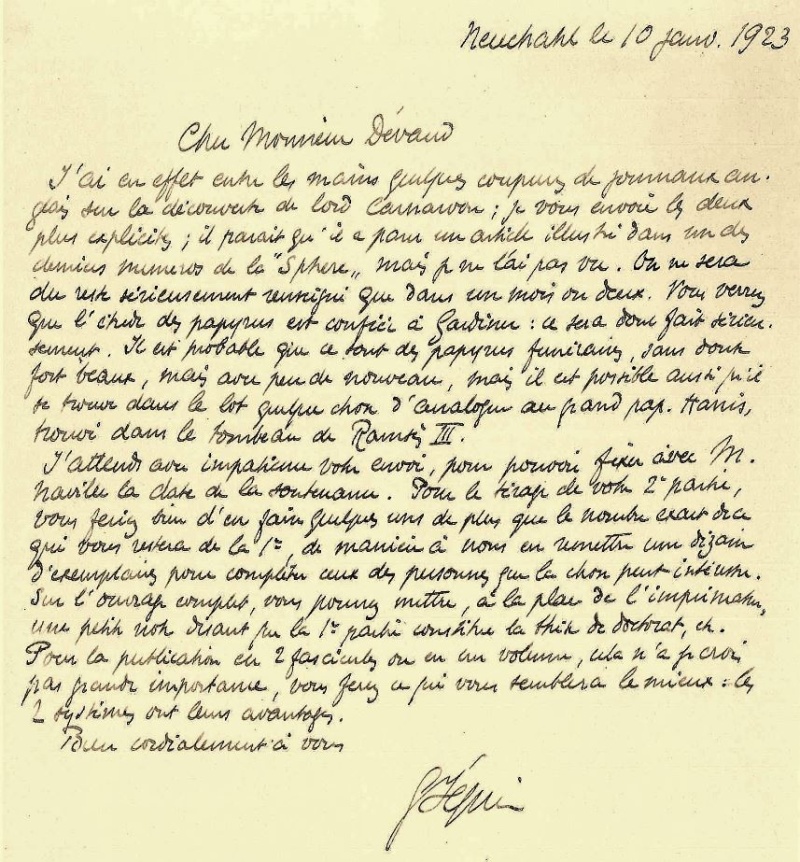 Neuchâtel le 10 janv. 1923
Cher Monsieur Dévaud
J'ai en effet entre les mains quelques coupures de journaux an-
glais sur la découverte de lord Carnarvon ; je vous envoie les deux
plus explicites ; il parait qu'il a paru un article illustré dans un des
derniers numeros de la "Sphere„ mais je ne l'ai pas vu. On ne sera
du reste sérieusement renseigné que dans un mois ou deux. Vous verrez
que l'étude des papyrus est confiée à Gardiner : ce sera donc fait sérieu-
sement. Il est probable que ce sont des papyrus funéraires, sans doute
fort beaux, mais avec peu de nouveau, mais il est possible aussi qu'il
se trouve dans le lot quelque chose d'analogue au grand pap. Harris,
trouvé dans le tombeau de Ramsès III.
J'attends avec impatience votre envoi, pour pouvoir fixer avec M.
Naville la date de la soutenance. Pour le tirage de votre 2e partie,
vous feriez bien d'en faire quelques uns de plus que le nombre exact de ce
qui vous restera de la 1re, de manière à nous en remettre une dizaine
d'exemplaires pour compléter ceux des personnes que la chose peut intéresser.
Sur l'ouvrage complet, vous pourrez mettre, à la place de l'imprimatur,
une petite note disant que la 1re partie constitue la thèse de doctorat, etc.
Pour la publication en 2 fascicules ou en un volume, cela n'a je crois
pas grande importance, vous ferez ce qui vous semblera le mieux : les
2 systèmes ont leurs avantages.
Bien cordialement à vous
G Jéquier